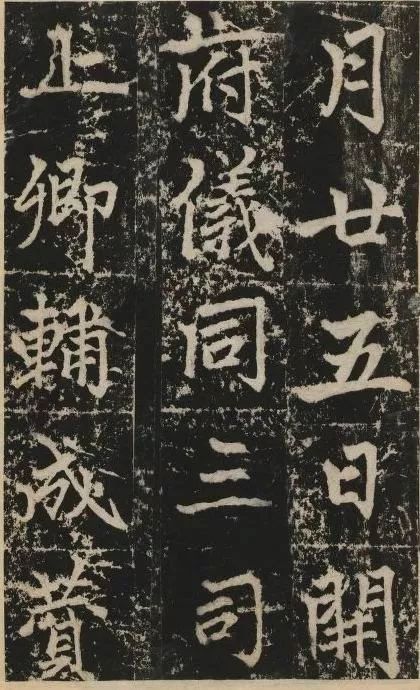 月廿五日開
府儀同三司
止卿輔成